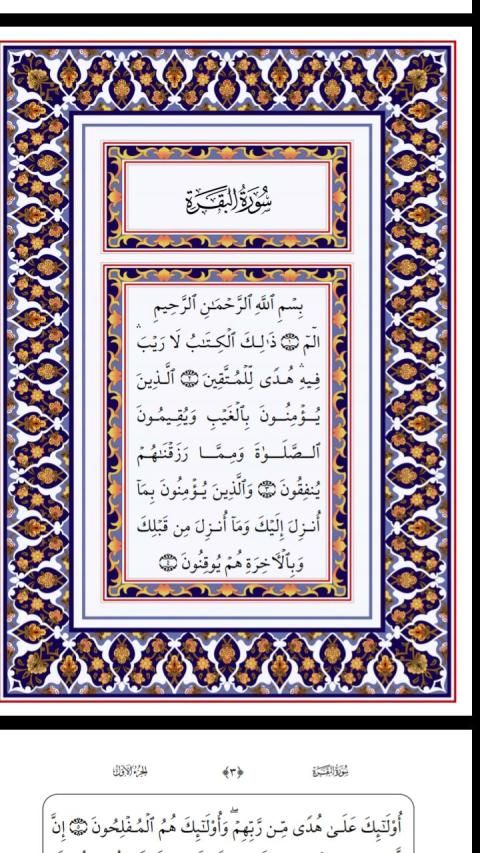 سُورَةُ الْبَقَرَةِ
بِسْمِ ٱللَّهِ ٱلرَّحْمَـٰنِ ٱلرَّحِيمِ
الٓمٓ ۝١ ذَٰلِكَ ٱلْكِتَـٰبُ لَا رَيْبَ ۛ
فِيهِ ۛ هُدًى لِّلْمُتَّقِينَ ۝٢ ٱلَّذِينَ
يُـؤْمِنُـونَ بِٱلْغَيْبِ وَيُقِيـمُونَ
ٱلـصَّلَـوٰةَ وَمِمَّـا رَزَقْنَـٰهُـمْ
يُنفِقُونَ ۝٣ وَٱلَّذِينَ يُـؤْمِنُونَ بِمَآ
أُنـزِلَ إِلَيْكَ وَمَآ أُنـزِلَ مِن قَبْلِكَ
وَبِٱلْـَٔاخِرَةِ هُمْ يُوقِنُونَ ۝٤
سُورَةُ الْبَقَرَةِ ﴿٣﴾ الجُزءُ الأَوَّلُ
أُوْلَـٰٓئِكَ عَلَـىٰ هُدًى مِّـن رَّبِّهِمْ ۖ وَأُوْلَـٰٓئِكَ هُمُ ٱلْمُـفْلِحُونَ ۝٥ إِنَّ